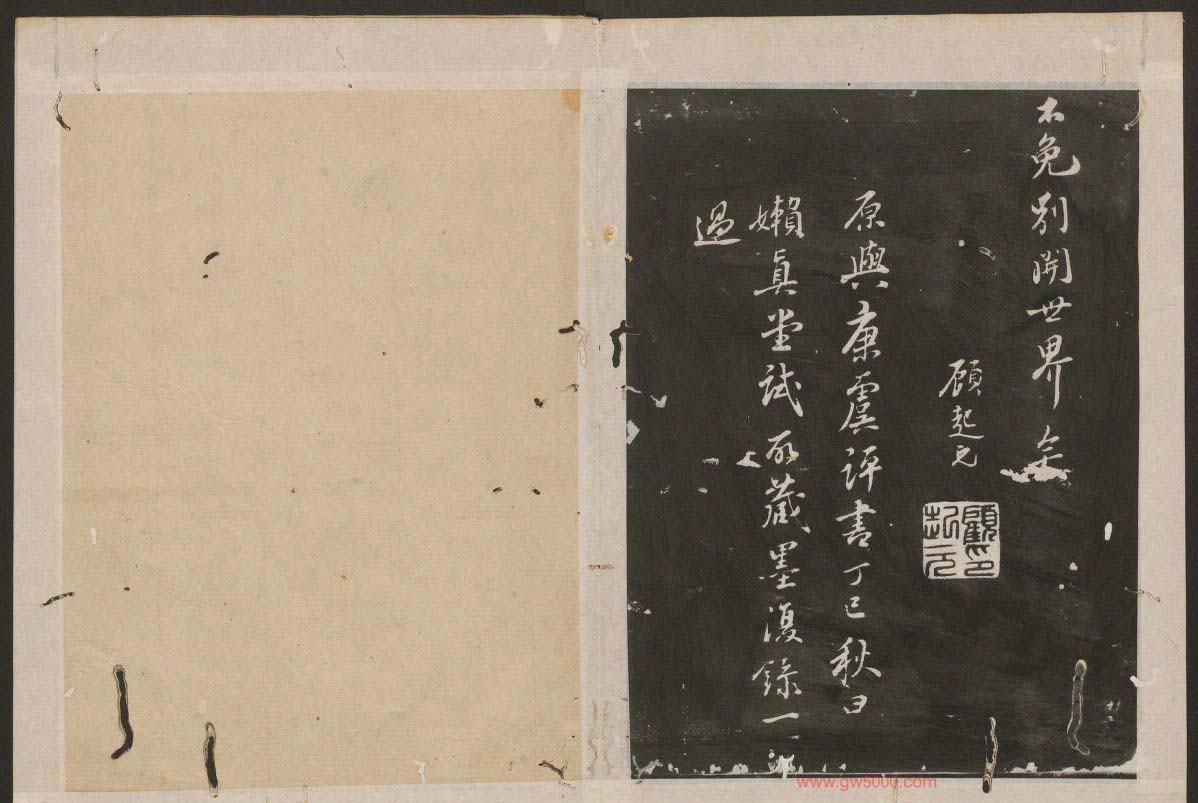 不免別開世界矣
顧起元
顧起元印
原與康虞評書丁巳秋日
嬾真堂試所藏墨復錄一
過
www.gw5000.com